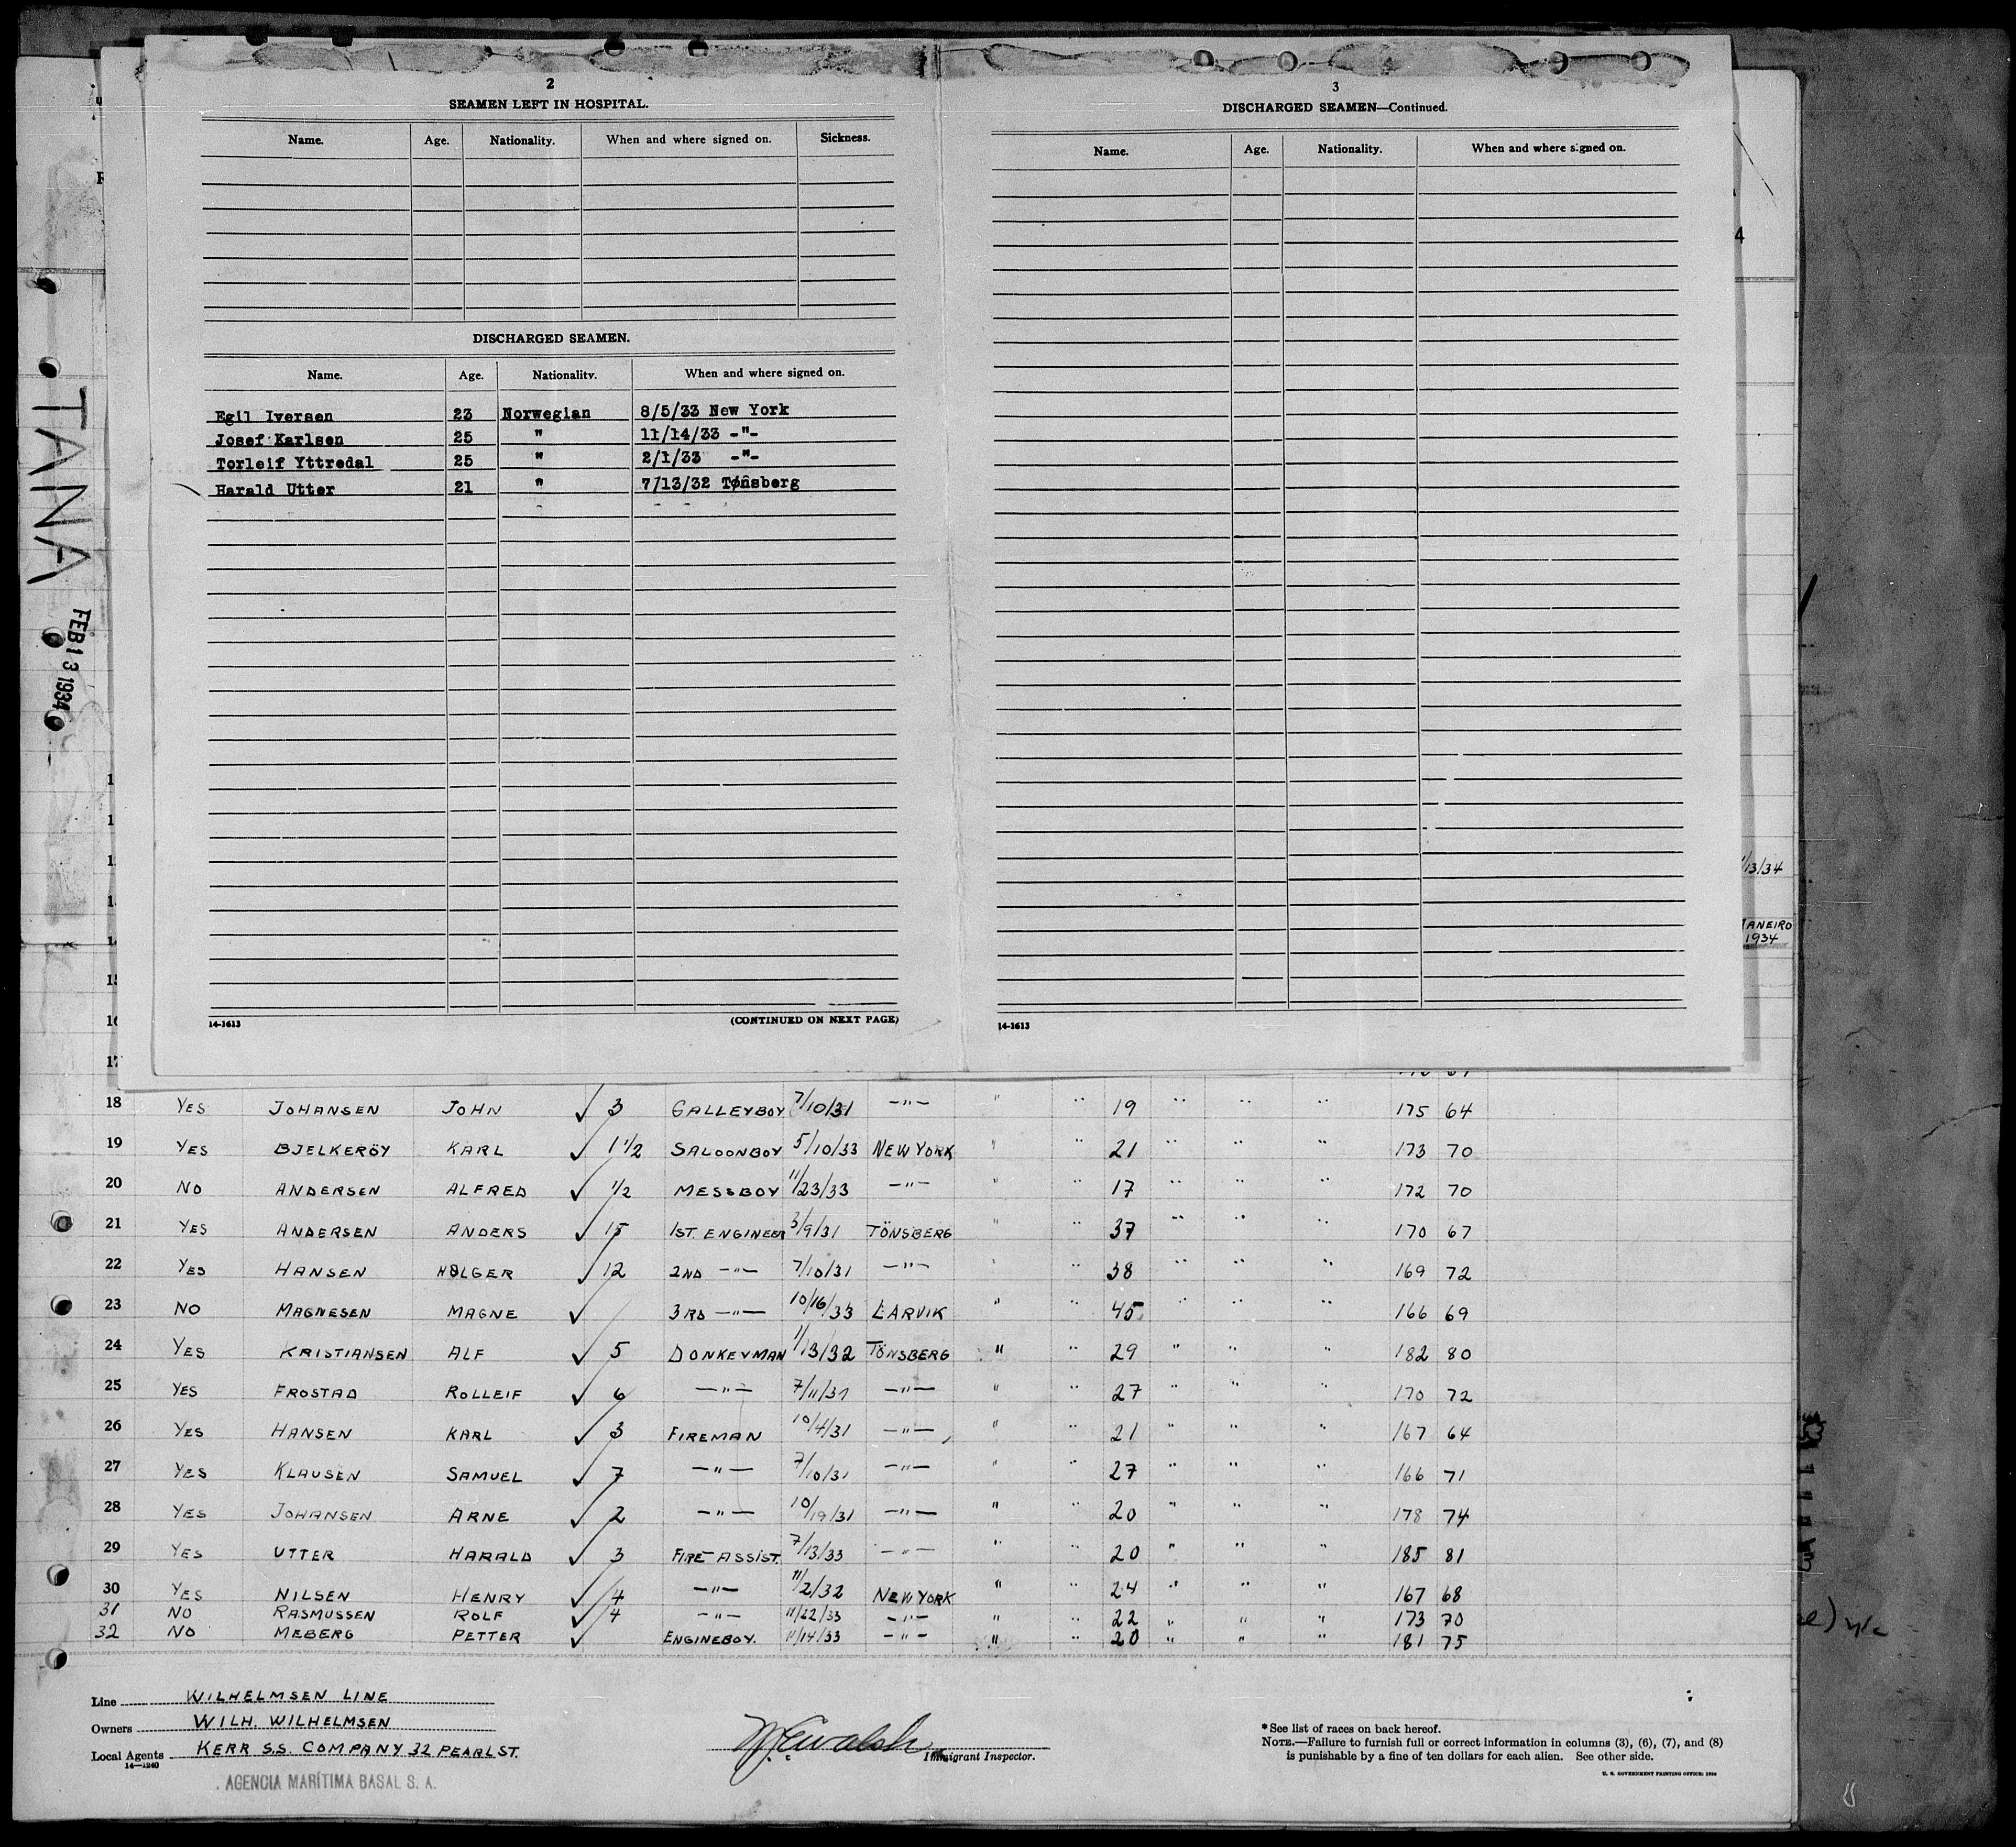 2
SEAMEN LEFT IN HOSPITAL.
Name. Age. Nationality. When and where signed on. Sickness.
DISCHARGED SEAMEN.
Name. Age. Nationality. When and where signed on.
Egil Iversen 23 Norwegian 8/5/33 New York
Josef Karlsen 25 " 11/14/33 -"-
Torleif Yttredal 25 " 2/1/33 -"-
Harald Utter 21 " 7/13/32 Tønsberg
14-1613 (CONTINUED ON NEXT PAGE)
3
DISCHARGED SEAMEN—Continued.
Name. Age. Nationality. When and where signed on.
14-1613
TANA
FEB 13 1934
4
1/13/34
JANEIRO
1934
14
15
16
17
18 YES JOHANSEN JOHN ✓ 3 GALLEYBOY 7/10/31 —"— " " 19 " " " 175 64
19 YES BJELKERÖY KARL ✓ 1 1/2 SALOONBOY 5/10/33 NEW YORK " " 21 " " " 173 70
20 NO ANDERSEN ALFRED ✓ 1/2 MESSBOY 11/23/33 —"— " " 17 " " " 172 70
21 YES ANDERSEN ANDERS ✓ 15 1ST. ENGINEER 3/9/31 TÖNSBERG " " 37 " " " 170 67
22 YES HANSEN HOLGER ✓ 12 2ND —"— 7/10/31 —"— " " 38 " " " 169 72
23 NO MAGNESEN MAGNE ✓ 3RD —"— 10/16/33 LARVIK " " 45 " " " 166 69
24 YES KRISTIANSEN ALF ✓ 5 DONKEYMAN 1/13/32 TÖNSBERG " " 29 " " " 182 80
25 YES FROSTAD ROLLEIF ✓ 6 —"— 7/11/31 —"— " " 27 " " " 170 72
26 YES HANSEN KARL ✓ 3 FIREMAN 10/4/31 —"— " " 21 " " " 167 64
27 YES KLAUSEN SAMUEL ✓ 7 —"— 7/10/31 —"— " " 27 " " " 166 71
28 YES JOHANSEN ARNE ✓ 2 —"— 10/19/31 —"— " " 20 " " " 178 74
29 YES UTTER HARALD ✓ 3 FIRE ASSIST. 7/13/33 —"— " " 20 " " " 185 81
30 YES NILSEN HENRY ✓ 4 —"— 11/2/32 NEW YORK " " 24 " " " 167 68
31 NO RASMUSSEN ROLF ✓ 4 —"— 11/22/33 —"— " " 22 " " " 173 70
32 NO MEBERG PETTER ✓ ENGINEBOY. 11/14/33 —"— " " 20 " " " 181 75
Line WILHELMSEN LINE
Owners WILH. WILHELMSEN
Local Agents KERR S.S. COMPANY 32 PEARL ST.
14—1240
AGENCIA MARÍTIMA BASAL S. A.
Immigrant Inspector.
*See list of races on back hereof.
NOTE.—Failure to furnish full or correct information in columns (3), (6), (7), and (8)
is punishable by a fine of ten dollars for each alien. See other side.